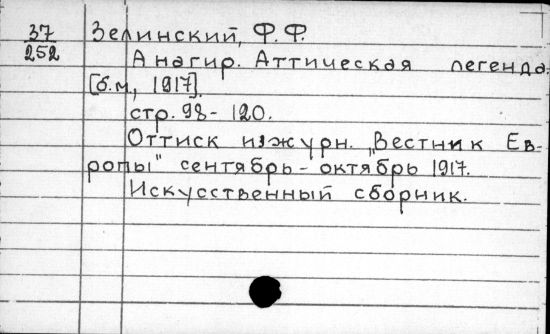 37 Зелинский, Ф. Ф.
252 Анагир. Аттическая легенда.
[б.м., 1917].
стр. 98 - 120.
Оттиск из журн. „Вестник Ев-
ропы" сентябрь - октябрь 1917.
Искусственный сборник.